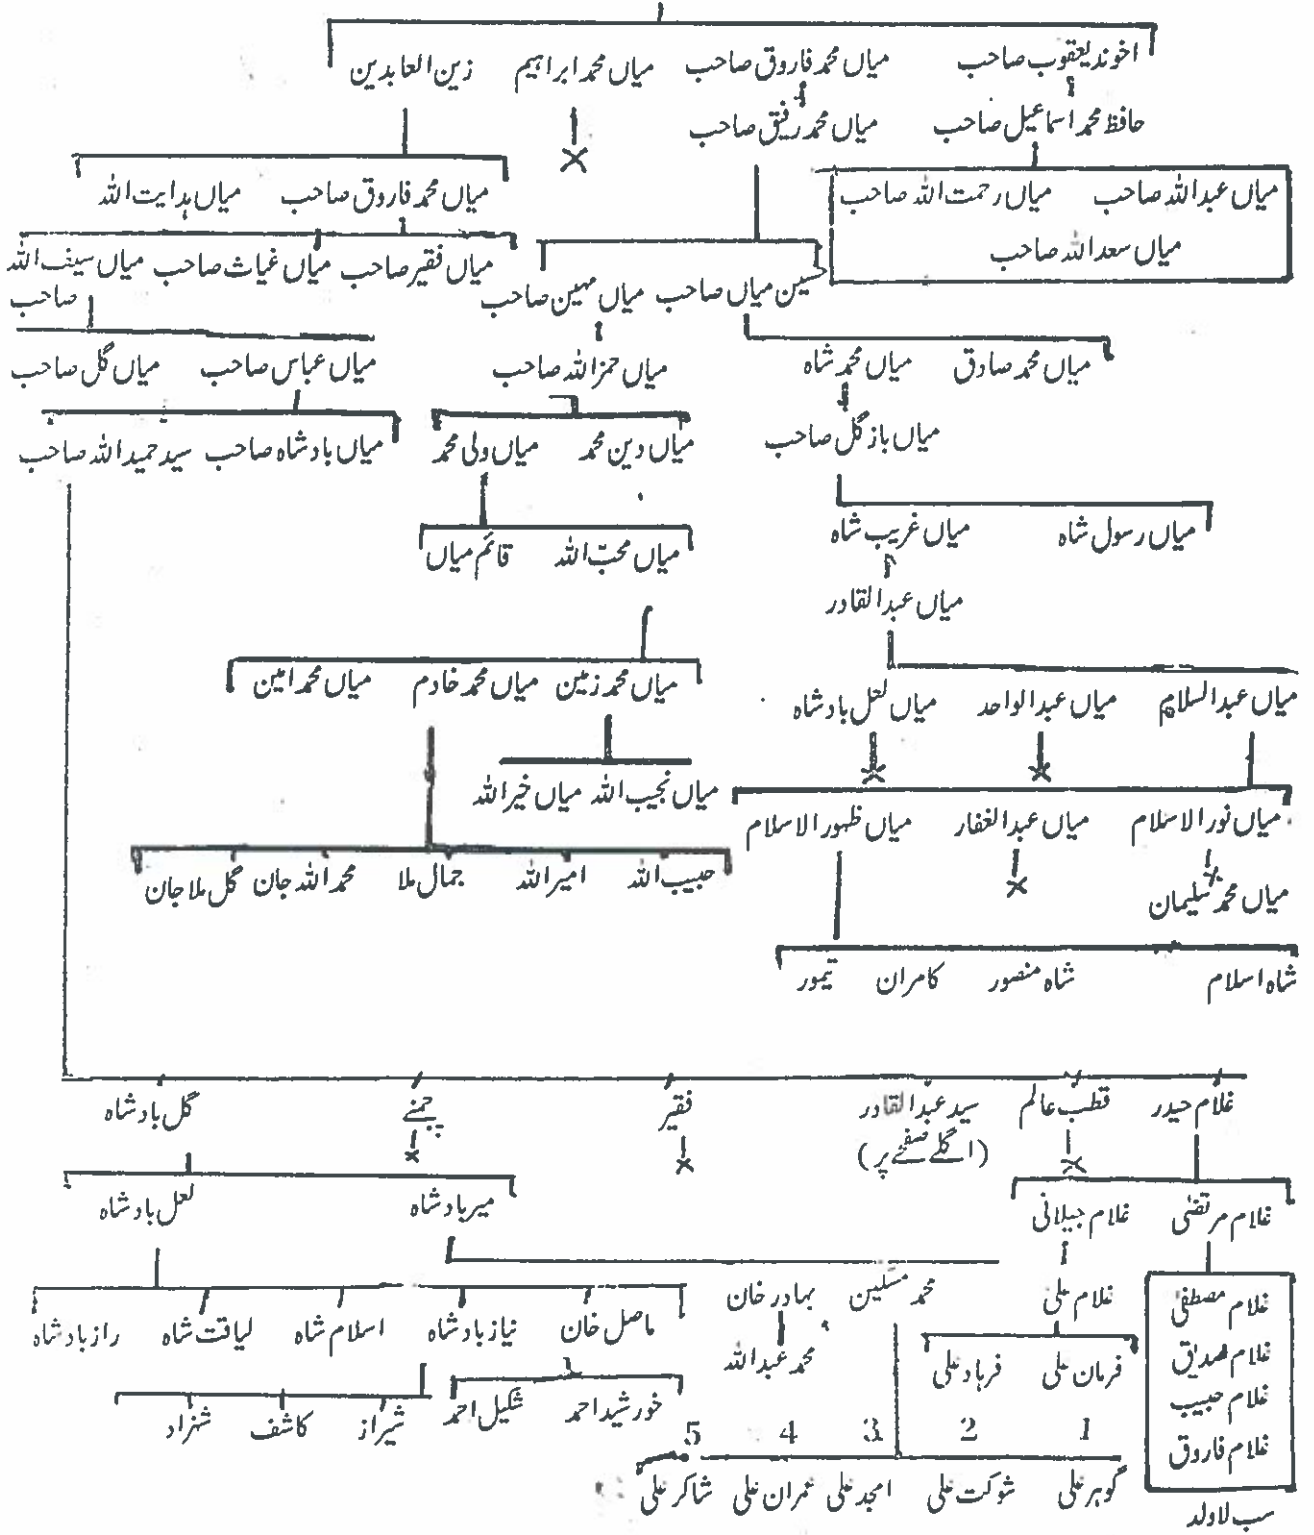 اخوند یعقوب صاحب میاں محمد فاروق صاحب میاں محمد ابراہیم زین العابدین
حافظ محمد اسماعیل صاحب میاں محمد رفیق صاحب
میاں عبداللہ صاحب میاں رحمت اللہ صاحب میاں محمد فاروق صاحب میاں ہدایت اللہ
میاں سعداللہ صاحب
میاں فقیر صاحب میاں غیاث صاحب میاں سیف اللہ صاحب
حسین میاں صاحب میاں مہین صاحب
میاں محمد صادق میاں محمد شاہ میاں حمزاللہ صاحب میاں عباس صاحب میاں گل صاحب
میاں باز گل صاحب میاں دین محمد میاں ولی محمد میاں بادشاہ صاحب سید حمید اللہ صاحب
میاں رسول شاہ میاں غریب شاہ میاں محبّ اللہ قائم میاں
میاں عبدالقادر
میاں محمد زمین میاں محمد خادم میاں محمد امین
میاں عبدالسلام میاں عبدالواحد میاں لعل بادشاہ
میاں نجیب اللہ میاں خیر اللہ
میاں نور الاسلام میاں عبدالغفار میاں ظہور الاسلام
حبیب اللہ امیر اللہ جمال ملا محمد اللہ جان گل ملا جان
میاں محمد سلیمان
شاہ اسلام شاہ منصور کامران تیمور
غلام حیدر قطب عالم سید عبدالقادر فقیر چمنے گل بادشاہ
(اگلے صفحے پر)
غلام مرتضیٰ غلام جیلانی میر بادشاہ لعل بادشاہ
غلام مصطفیٰ غلام علی محمد مسکین بہادر خان
ماصل خان نیاز بادشاہ اسلام شاہ لیاقت شاہ راز بادشاہ
غلام صدیق فرمان علی فرہاد علی محمد عبداللہ
غلام حبیب خورشید احمد شکیل احمد شیراز کاشف شہزاد
غلام فاروق
1 2 3 4 5
گوہر علی شوکت علی امجد علی عمران علی شاکر علی
سب لاولد